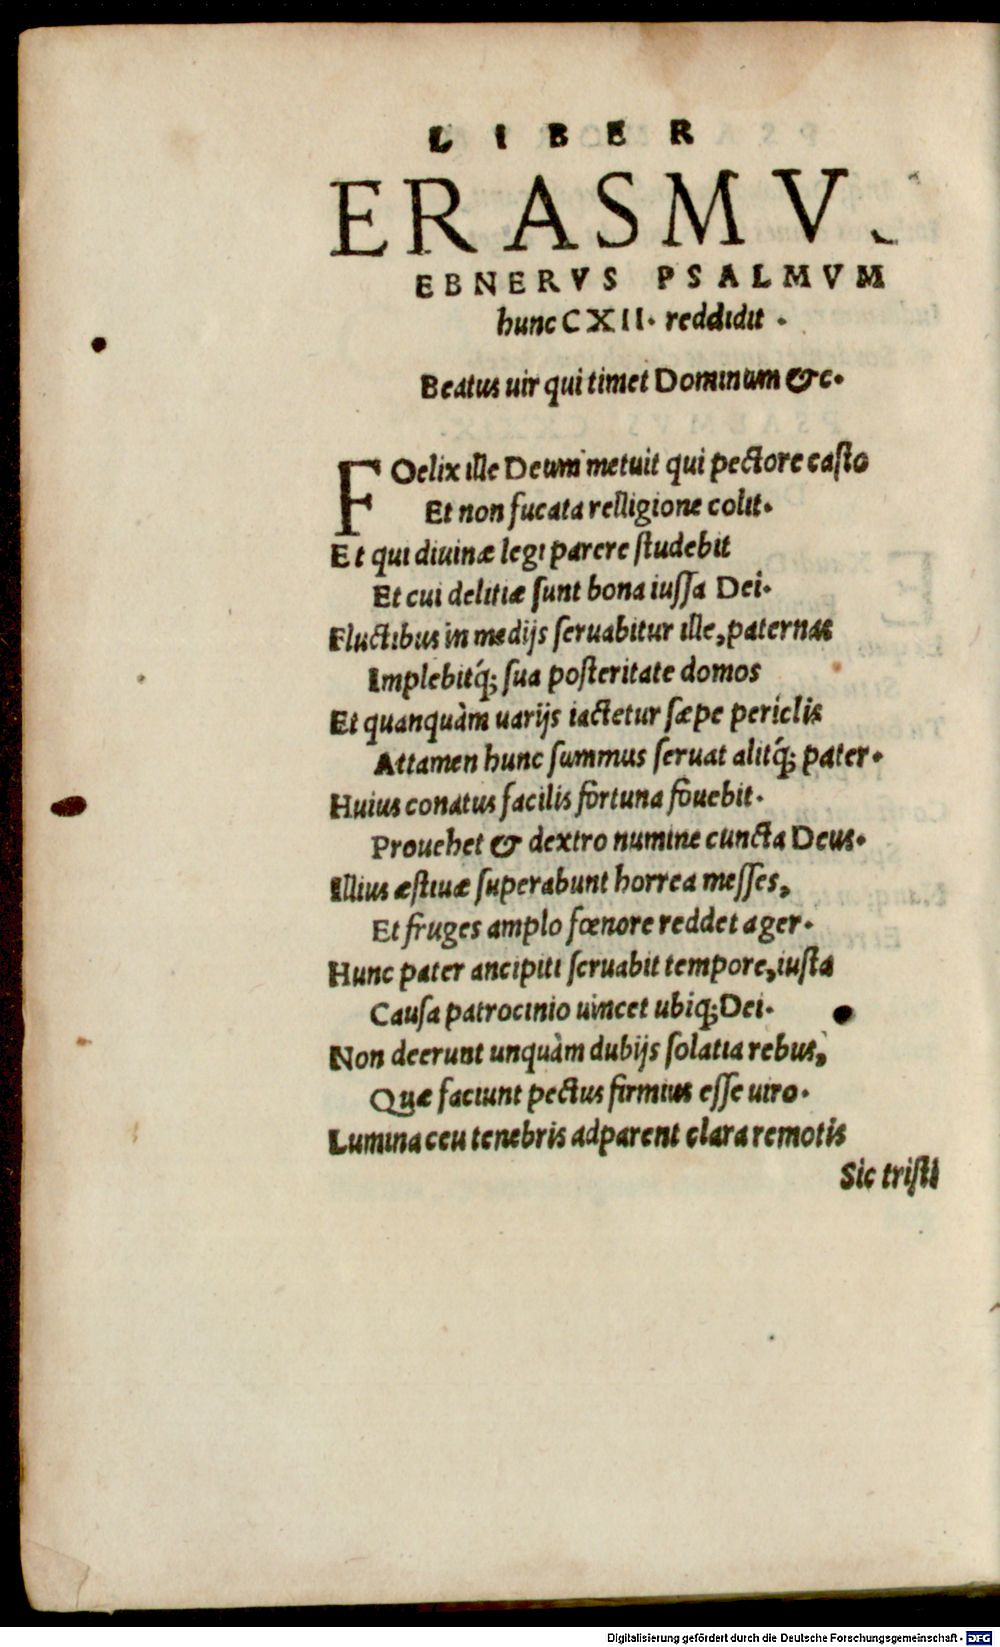 LIBER
ERASMVS
EBNERVS PSALMVM
hunc CXII. reddidit.
Beatus uir qui timet Dominum &c.
FOelix ille Deum metuit qui pectore casto
Et non fucata relligione colit.
Et qui diuinæ legi parere studebit
Et cui delitiæ sunt bona iussa Dei.
Fluctibus in medijs seruabitur ille, paternas
Implebitq́; sua posteritate domos
Et quanquàm uarijs iactetur sæpe periclis
Attamen hunc summus seruat alitq́; pater.
Huius conatus facilis fortuna fouebit.
Prouehet & dextro numine cuncta Deus.
Illius æstiuæ superabunt horrea messes,
Et fruges amplo fœnore reddet ager.
Hunc pater ancipiti seruabit tempore, iusta
Causa patrocinio uincet ubiq; Dei.
Non deerunt unquàm dubijs solatia rebus,
Quæ faciunt pectus firmius esse uiro.
Lumina ceu tenebris adparent clara remotis
Sic tristi
Digitalisierung gefördert durch die Deutsche Forschungsgemeinschaft - DFG